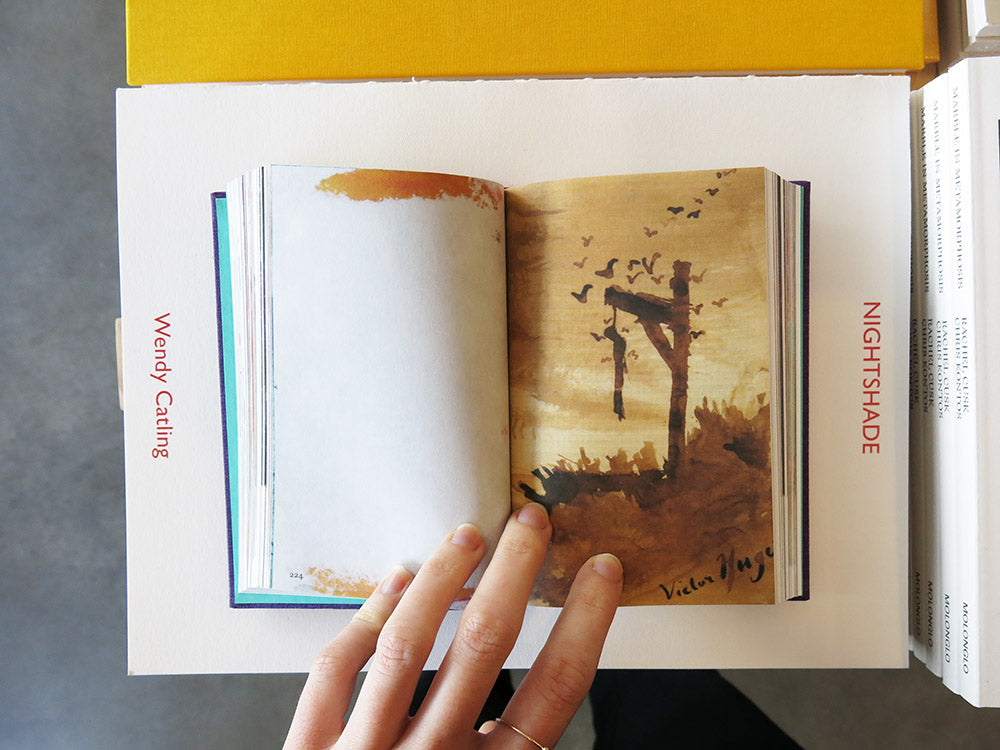 Wendy Catling
NIGHTSHADE
224
Victor Hugo
MARBLE IN METAMORPHOSIS
RACHEL CUSK
CHRIS KONTOS
MOLONGLO
MARBLE IN METAMORPHOSIS
RACHEL CUSK
CHRIS KONTOS
MOLONGLO
MARBLE IN METAMORPHOSIS
RACHEL CUSK
CHRIS KONTOS
MOLONGLO
RACHEL CUSK
MOLONGLO